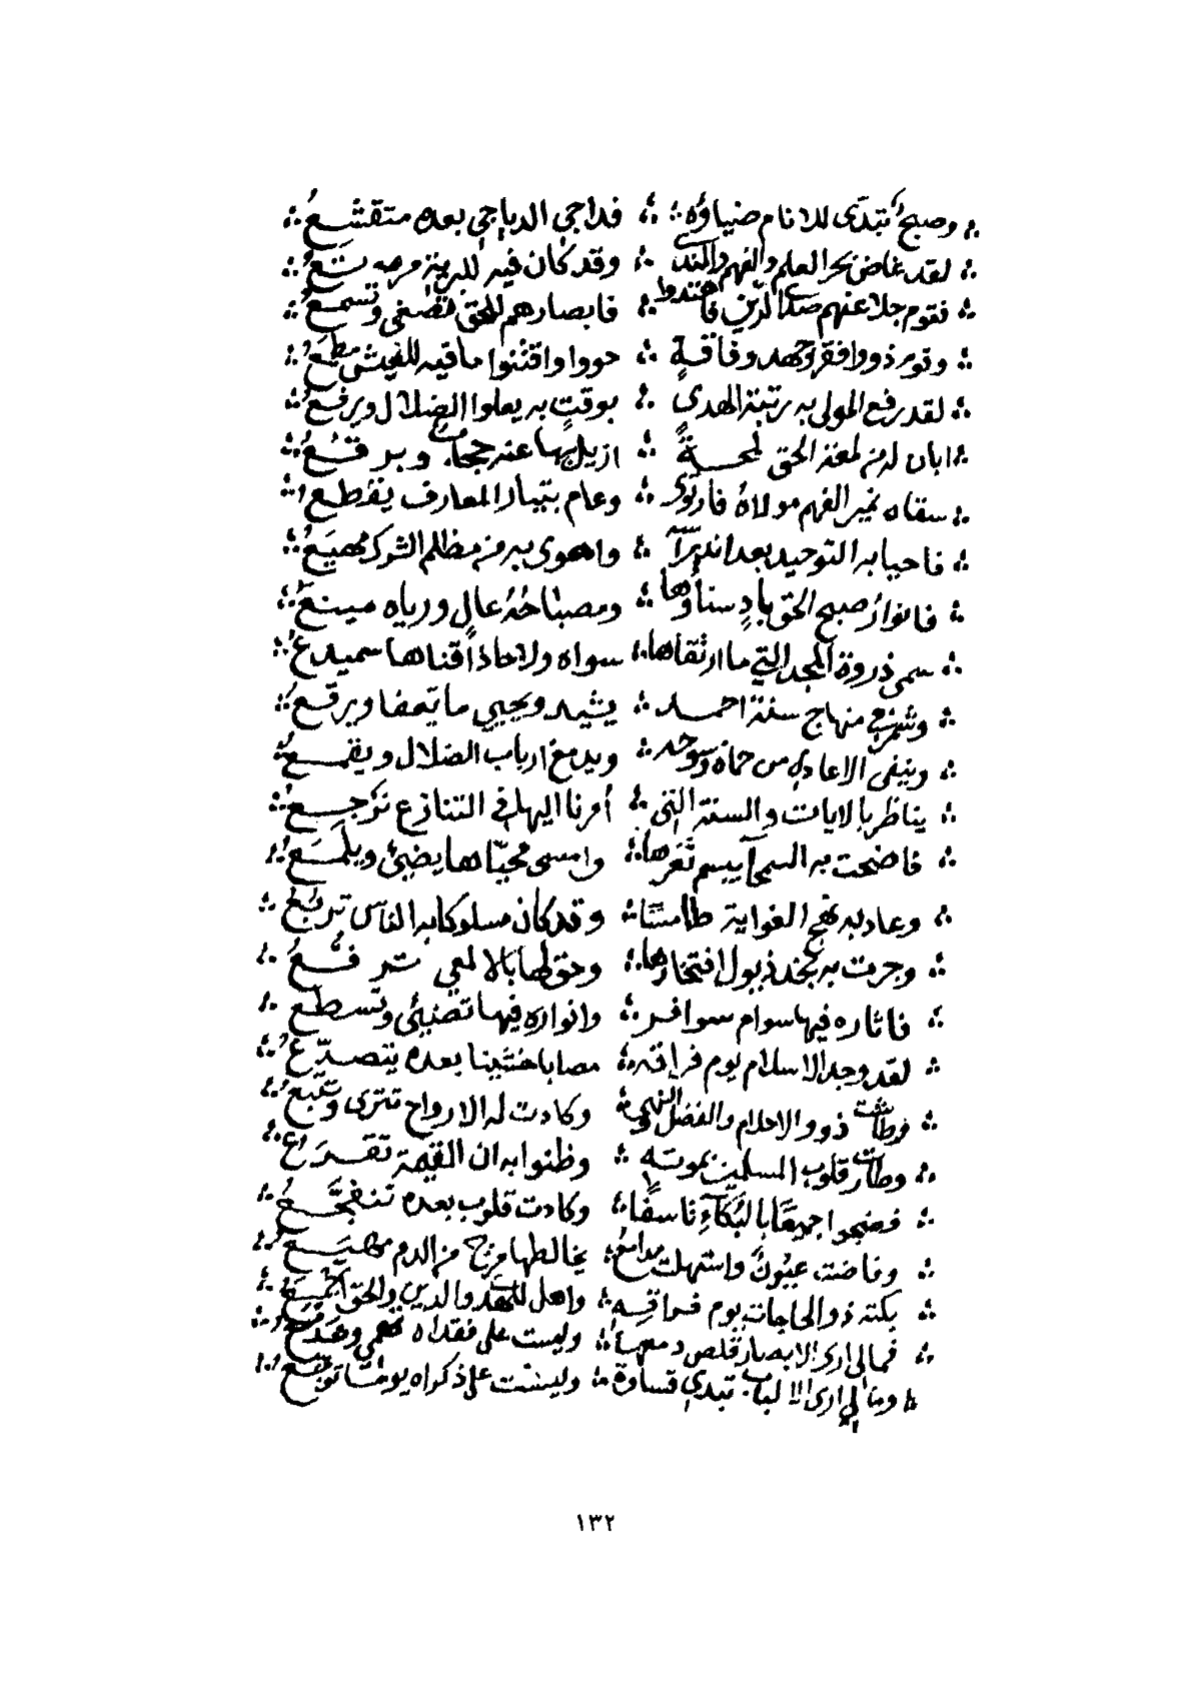 ؞ وصبحٌ تبدّى للانام ضياؤه ؞ فداجي الدياجي بعده متقشعُ ؞
؞ لقد غاض بحر العلم والفهم والندى ؞ وقد كان فيه للبرية مرتعُ ؞
؞ فقوم جلا عنهم صدا الدّين فاهتدوا ؞ فابصارهم للحق تصغى وتسمعُ ؞
؞ وقوم ذووا فقر وجهد وفاقةٍ ؞ حووا واقتنوا مافيه للعيش مطمعُ ؞
؞ لقد رفع المولى به رتبة الهدىً ؞ بوقتٍ به يعلوا الضلال ويرفعُ ؞
؞ ابان له من لمعة الحق لمحـــةً ؞ ازيل بها عنه حجاب وبرقــعُ ؞
؞ سقاه نمير الفهم مولاهُ فارتوى ؞ وعام بتيار المعارف يقطع ؞
؞ فاحيا به التوحيد بعد اندراسه ؞ واهوى به من مظلم الشرك مهيَعُ ؞
؞ فانوارُ صبح الحق بادٍ سناؤها ؞ ومصباحُهُ عالٍ ورياه
؞ سمى ذروة المجد التي ما ارتقاها ؞ سواه ولا حاذا قناها سميدعُ ؞
؞ وشمر في منهاج سنة احمـــد ؞ يشيد ويحيي ما تعفا ويرقعُ ؞
؞ وينفي الاعادي من حماه وسوحه ؞ ويدمغ ارباب الضلال ويقمــعُ ؞
؞ يناظر بالايات والسنة التي ؞ أُمرنا اليها في التنازع نرجــعُ ؞
؞ فاضحت به السمحآ يبسم ثغرها ؞ وامسى محيّاها يضيئ ويلمَــعُ ؞
؞ وعاد به نهج الغواية طامسًا ؞ وقد كان مسلوكا به الناس تربَعُ ؞
؞ وجرت به نجد ذيول افتخارها ؞ وحق لها بالالمعي ترفــعُ ؞
؞ فاثاره فيها سوام سوافــر ؞ وانواره فيها تضيئ وتسطع ؞
؞ لقد وجد الاسلام يوم فراقه ؞ مصابا خشينا بعده يتصــدّعُ ؞
؞ وطاشت ذوو الاحلام والفضل والنهى ؞ وكادت له الارواح تترى وتتبعُ ؞
؞ وطارت قلوب المسلمين بموته ؞ وظنوا به ان القيمة تقــرَعُ ؞
؞ فضجوا جميعًا بالبُكآءِ تاسفًا ؞ وكادت قلوب بعده تتفجــعُ ؞
؞ وفاضت عيُونٌ واستهلت مدامعُ ؞ يخالطها مزج من الدم مهيَــعُ ؞
؞ بكته ذوالحاجات يوم فــراقِــهِ ؞ واهل الهدى والدين والحق اجمــعُ ؞
؞ فمالي ارى الابصار قلص دمعها ؞ وليست على فقداه تهمي وتدمــعُ ؞
؞ ومالي ارى الالباب تبدي قساوةً ؞ وليست على ذكراه يومًــا توجــعُ ؞
١٣٢